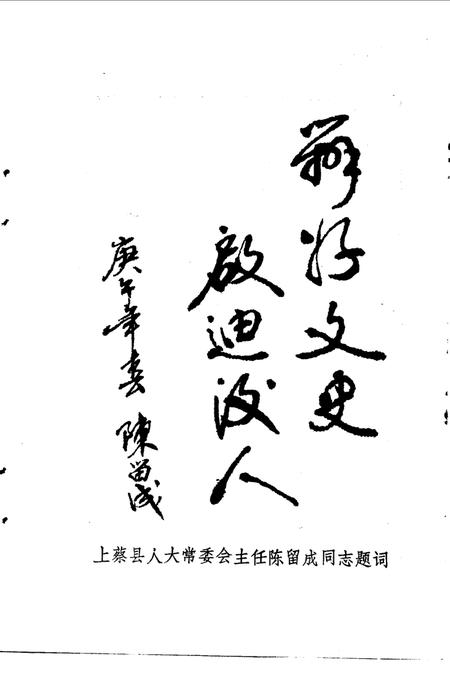 辦好文史
啟迪後人
庚午年春 陳留成
上蔡县人大常委会主任陈留成同志题词